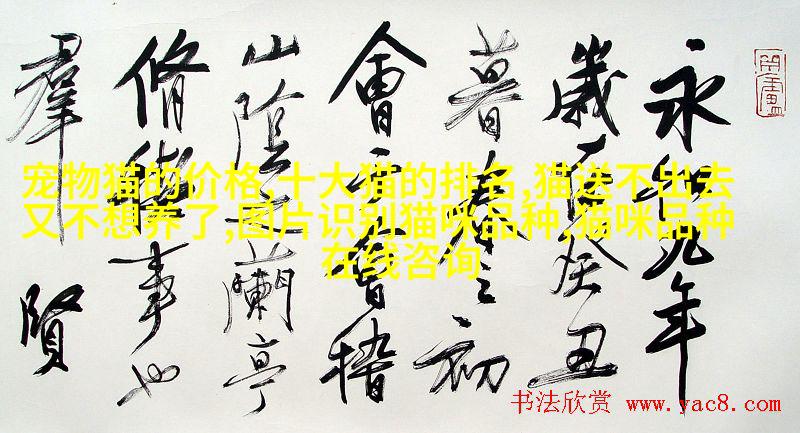 永和九年
歲在癸丑
暮春之初
會于會稽
山陰之蘭亭
脩禊事也
羣賢
宠物猫的价格,十大猫的排名,猫送不出去
又不想养了,图片识别猫咪品种,猫咪品种
在线咨询
书法欣赏 www.yac8.com